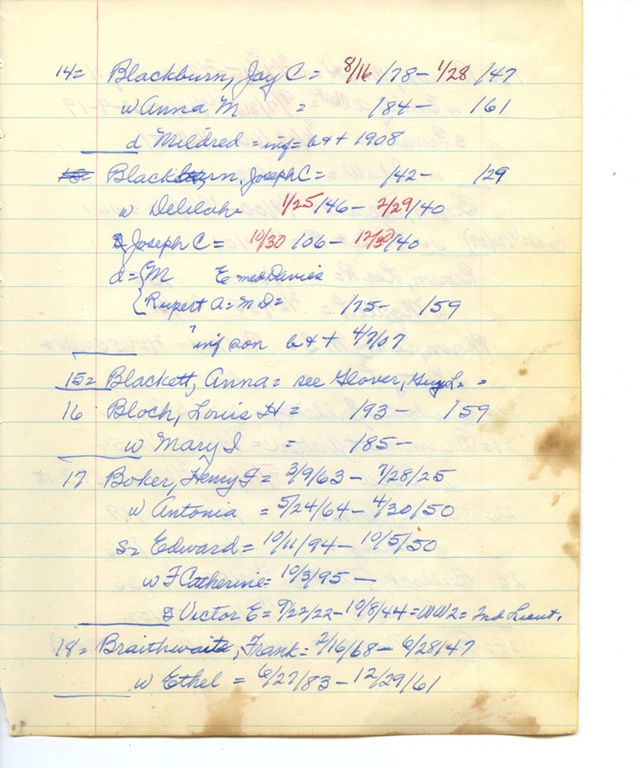 14= Blackburn, Jay C = 8/16/78 - 1/28/47
w Anna M = /84 - 161
d Mildred = inf = b + t 1908
Blackburn, Joseph C = /42 - /29
w Delilah = 1/25/46 - 2/29/40
s Joseph C = 10/30 106 - 12/30/40
d = { M E Davies
{ Rupert A = M D = /75 - 159
" inf son b + t 4/7/07
15= Blackett, Anna = see Glover, Guy L. =
16 Bloch, Louis H = /93 - /59
w Mary I = /85 -
17 Boker, Henry F = 3/9/63 - 7/28/25
w Antonia = 5/24/64 - 4/30/50
s= Edward = 10/11/94 - 10/5/50
w F Catherine = 10/3/95 -
s Victor E = 9/22/22 - 10/8/44 = WW2 = 2nd Lieut.
18= Braithwaite, Frank = 2/16/68 - 6/28/47
w Ethel = 6/27/83 - 12/29/61